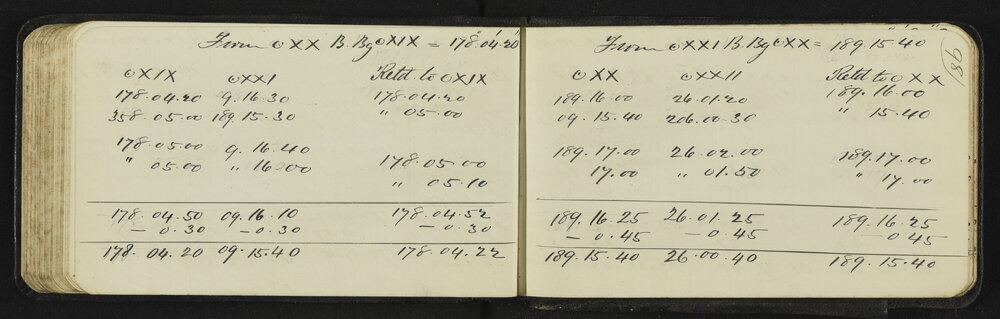 From oXX B. Bg oXIX = 178°04'20"
oXIX oXXI Retd to oXIX
178.04.20 9.16.30 178.04.20
358.05.00 189.15.30 " 05.00
178.05.00 9.16.40
" 05.00 " 16.00 178.05.00
" 05.10
178.04.50 09.16.10 178.04.52
– 0.30 – 0.30 – 0.30
178.04.20 09.15.40 178.04.22
98
From oXXI B. Bg oXX = 189.15.40
oXX oXXII Retd to oXX
189.16.00 26.01.20 189.16.00
09.15.40 206.00.30 " 15.40
189.17.00 26.02.00 189.17.00
17.00 " 01.50 " 17.00
189.16.25 26.01.25 189.16.25
– 0.45 – 0.45 – 0.45
189.15.40 26.00.40 189.15.40